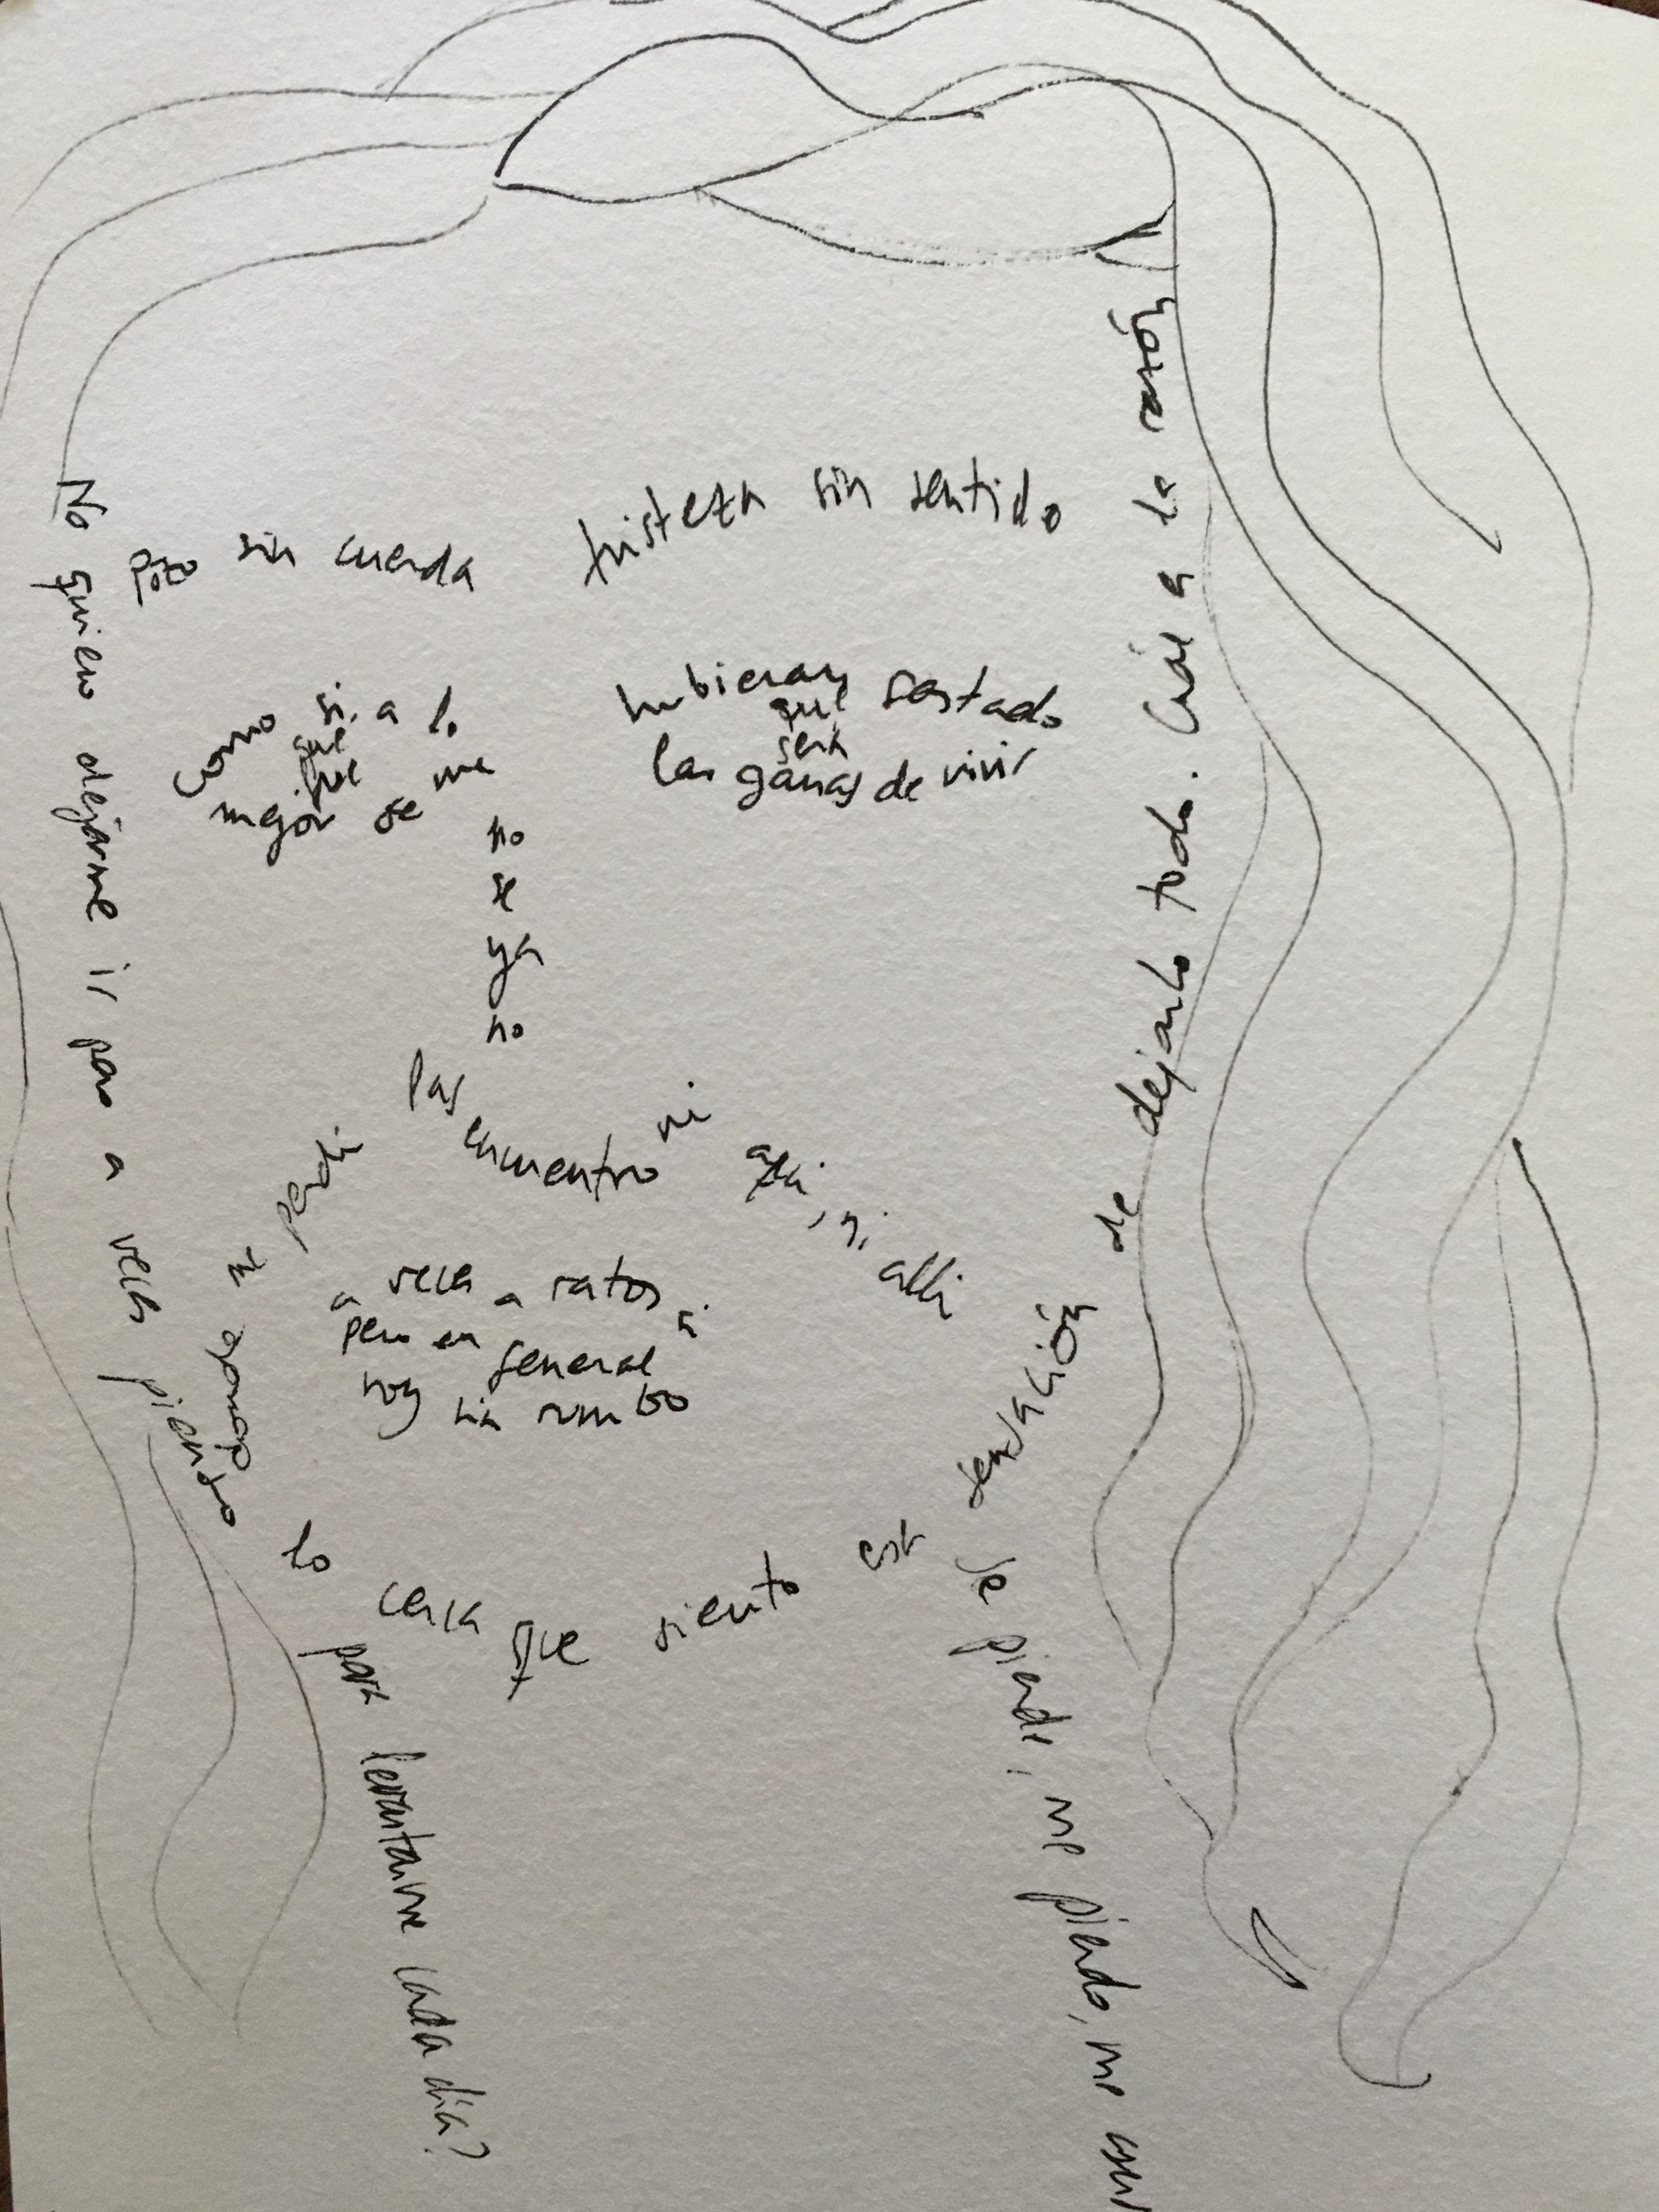 pozo sin cuerda
tristeza sin sentido
como si a lo
mejor se me
hubieran gastado
las ganas de vivir
que
será
no
se
ya
no
las
encuentro ni
ni allí
a veces a ratos sí
pero en general
voy sin rumbo
No quiero dejarme ir pero a veces pienso
lo cerca que siento esa sensación de dejarlo todo. Cuál es la razón
para levantarme cada día?
se pierde, me pierdo, me
me perdí